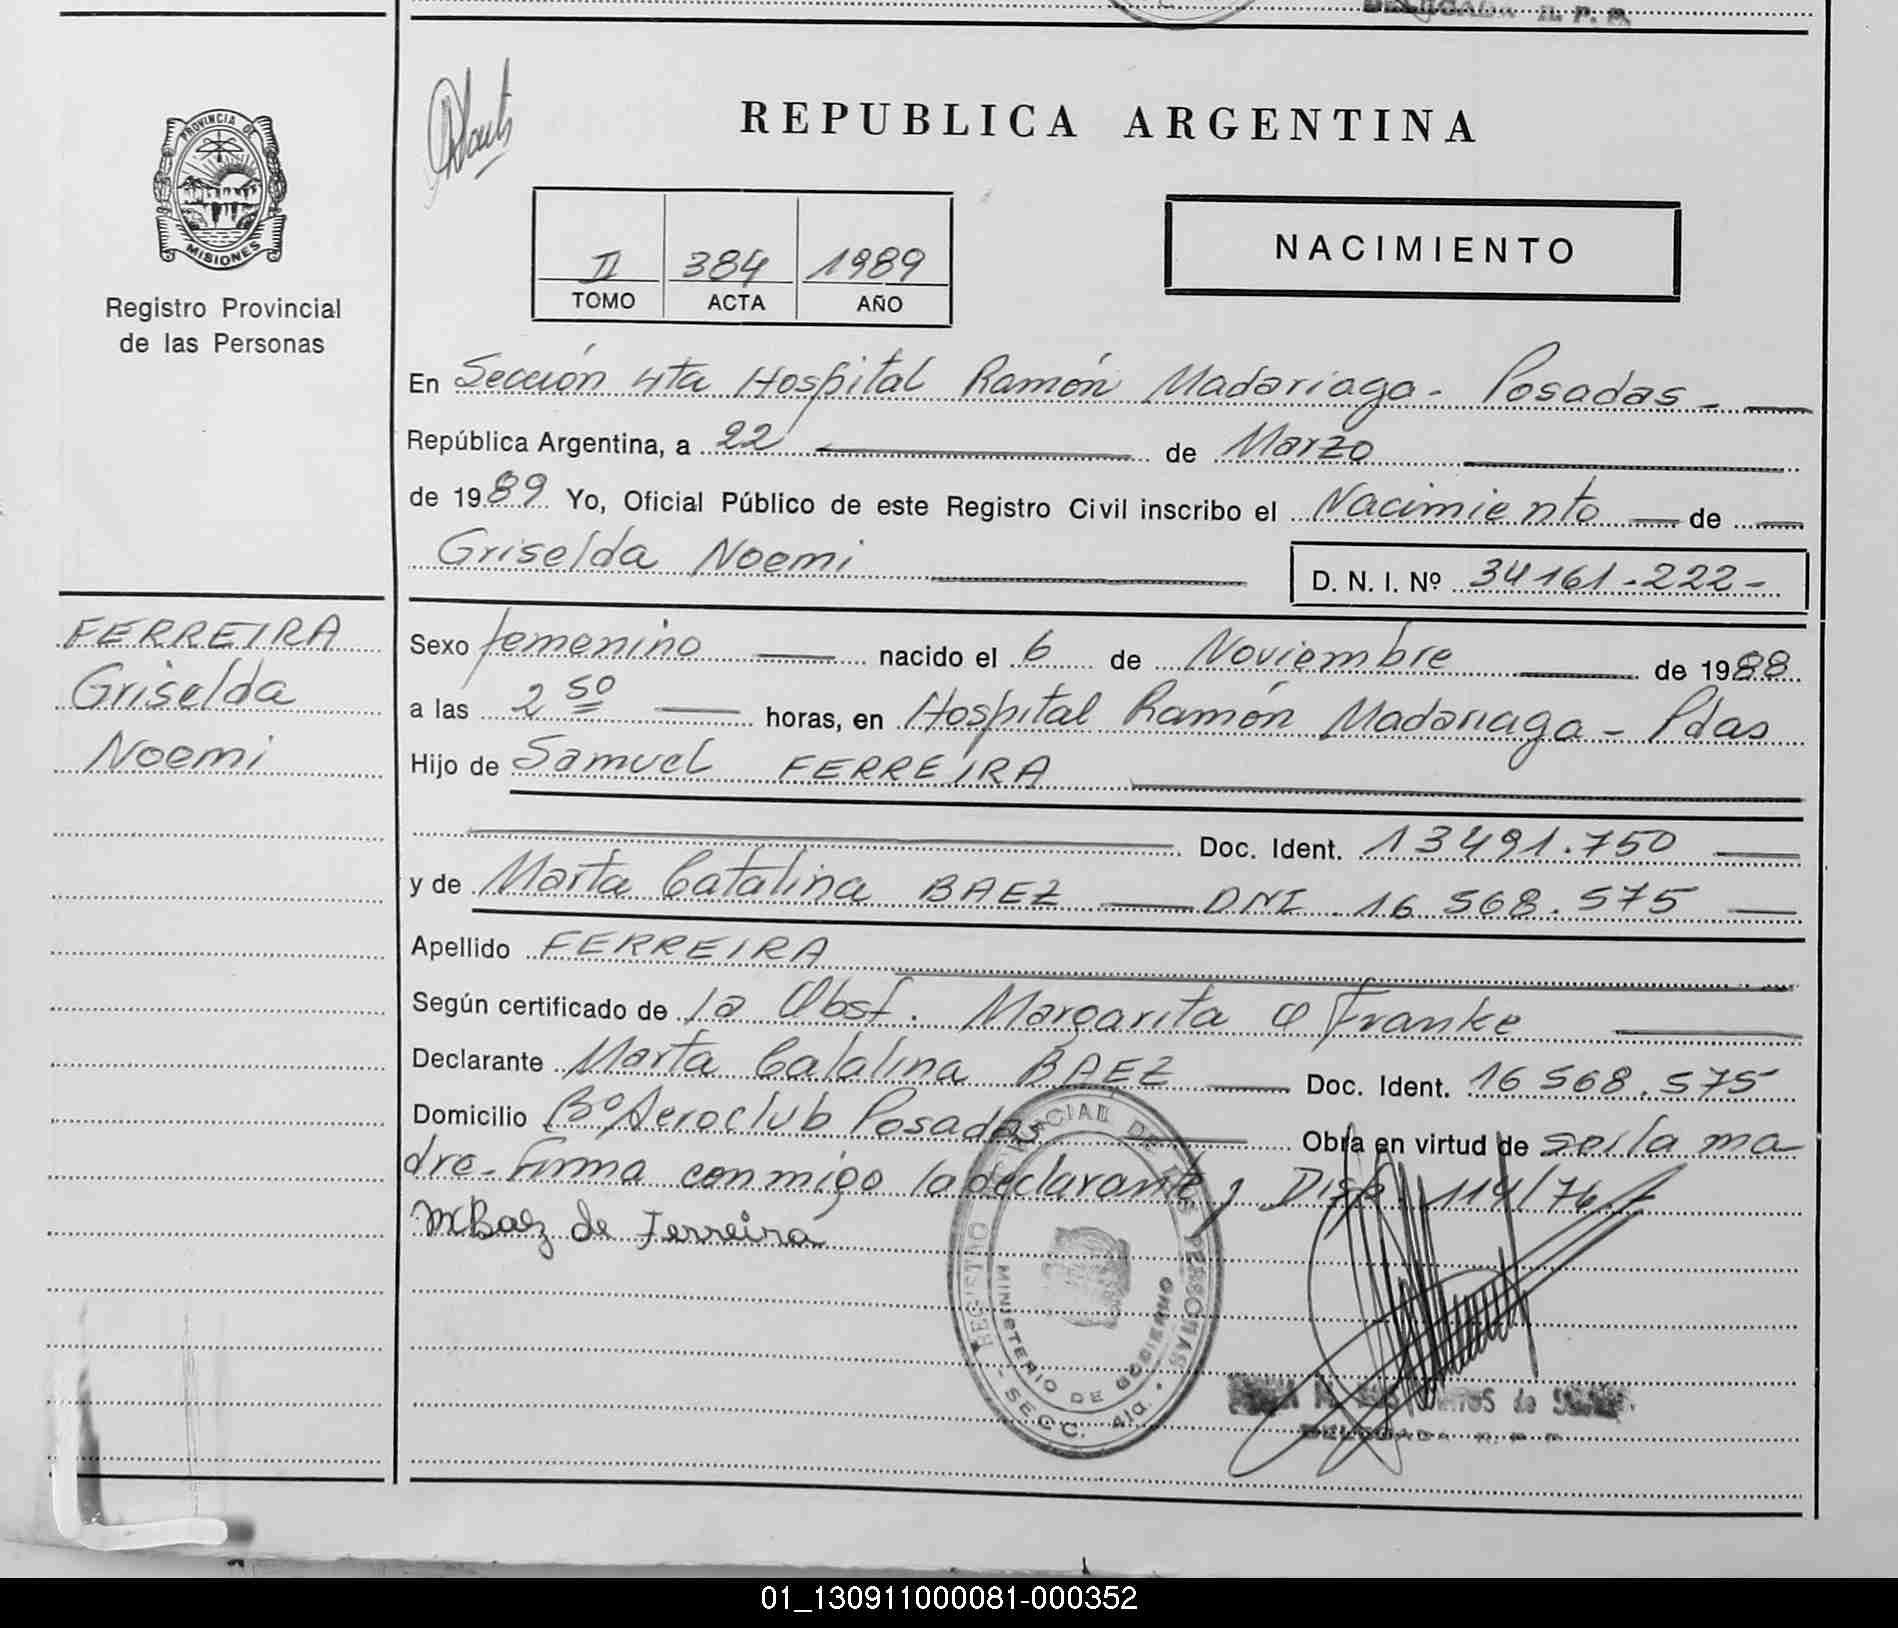 DELEGADA R. P. P.
REPUBLICA ARGENTINA
PROVINCIA DE
MISIONES
Registro Provincial
de las Personas
II 384 1989
TOMO ACTA AÑO
NACIMIENTO
En Sección 4ta Hospital Ramón Madariaga - Posadas -
República Argentina, a 22 de Marzo
de 1989 Yo, Oficial Público de este Registro Civil inscribo el Nacimiento de
Griselda Noemi
D. N. I. Nº 34161.222-
FERREIRA
Griselda
Noemi
Sexo femenino nacido el 6 de Noviembre de 1988
a las 2 50 horas, en Hospital Ramón Madariaga - Pdas
Hijo de Samuel FERREIRA
Doc. Ident. 13491.750
y de Marta Catalina BAEZ DNI 16 568.575
Apellido FERREIRA
Según certificado de la Obst. Margarita Franke
Declarante Marta Catalina BAEZ Doc. Ident. 16 568.575
Domicilio Bº Aeroclub Posadas Obra en virtud de ser la ma
dre - Firma conmigo la declarante y Disp. 114/76
MBaez de Ferreira
REGISTRO PROVINCIAL DE LAS PERSONAS
MINISTERIO DE GOBIERNO
- SECC. 4ta.
DELEGADA R. P. P.
01_130911000081-000352